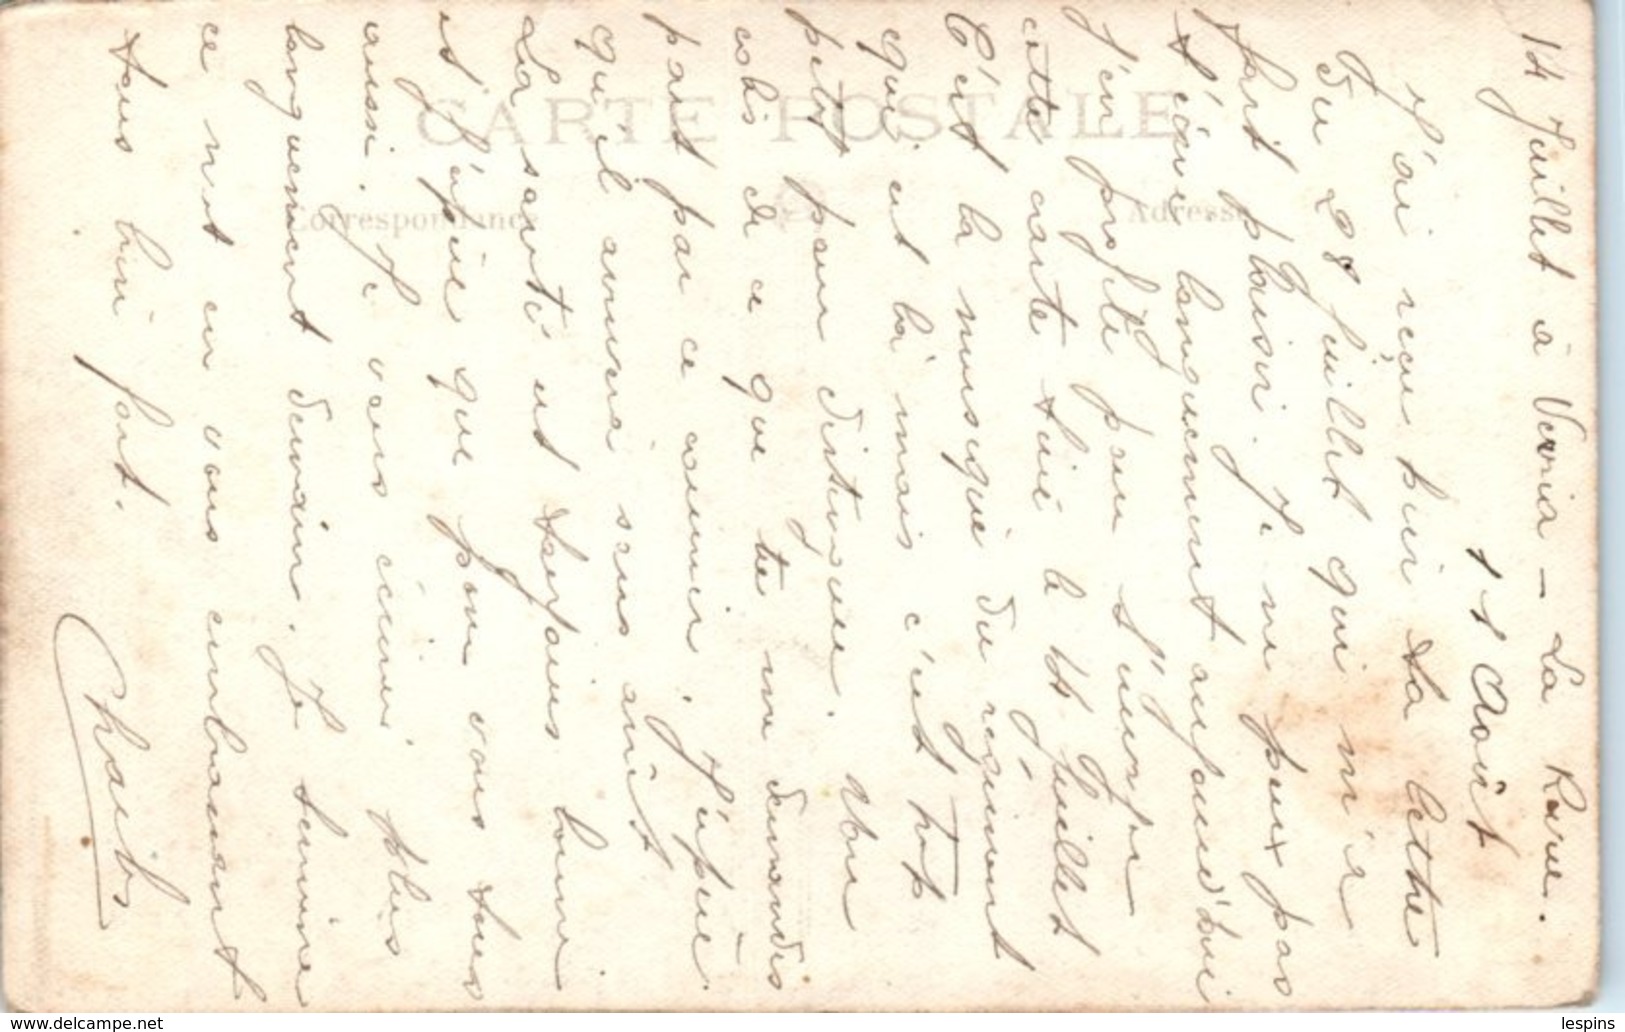 14 Juillet à Verria - La Revue.
11 Août
J'ai reçu bien ta lettre
du 28 juillet qui m'a
fait plaisir. Je ne peux pas
t'écrire longuement aujourd'hui
j'en profite pour t'envoyer
cette carte tiré le 14 Juillet
C'est la musique du régiment
qui est là mais c'est trop
petit pour distinguer. Mon
colis de ce que tu me demandes
part par ce courrier. J'espère
qu'il arrivera sans arrêt
La santé est toujours bonne
et j'espère que pour vous tous
aussi. Je vous écrirai plus
longuement demain. Je termine
ce mot en vous embrassant
tous bien fort.
Charles
CARTE POSTALE
Correspondance
Adresse
lespins
www.delcampe.net